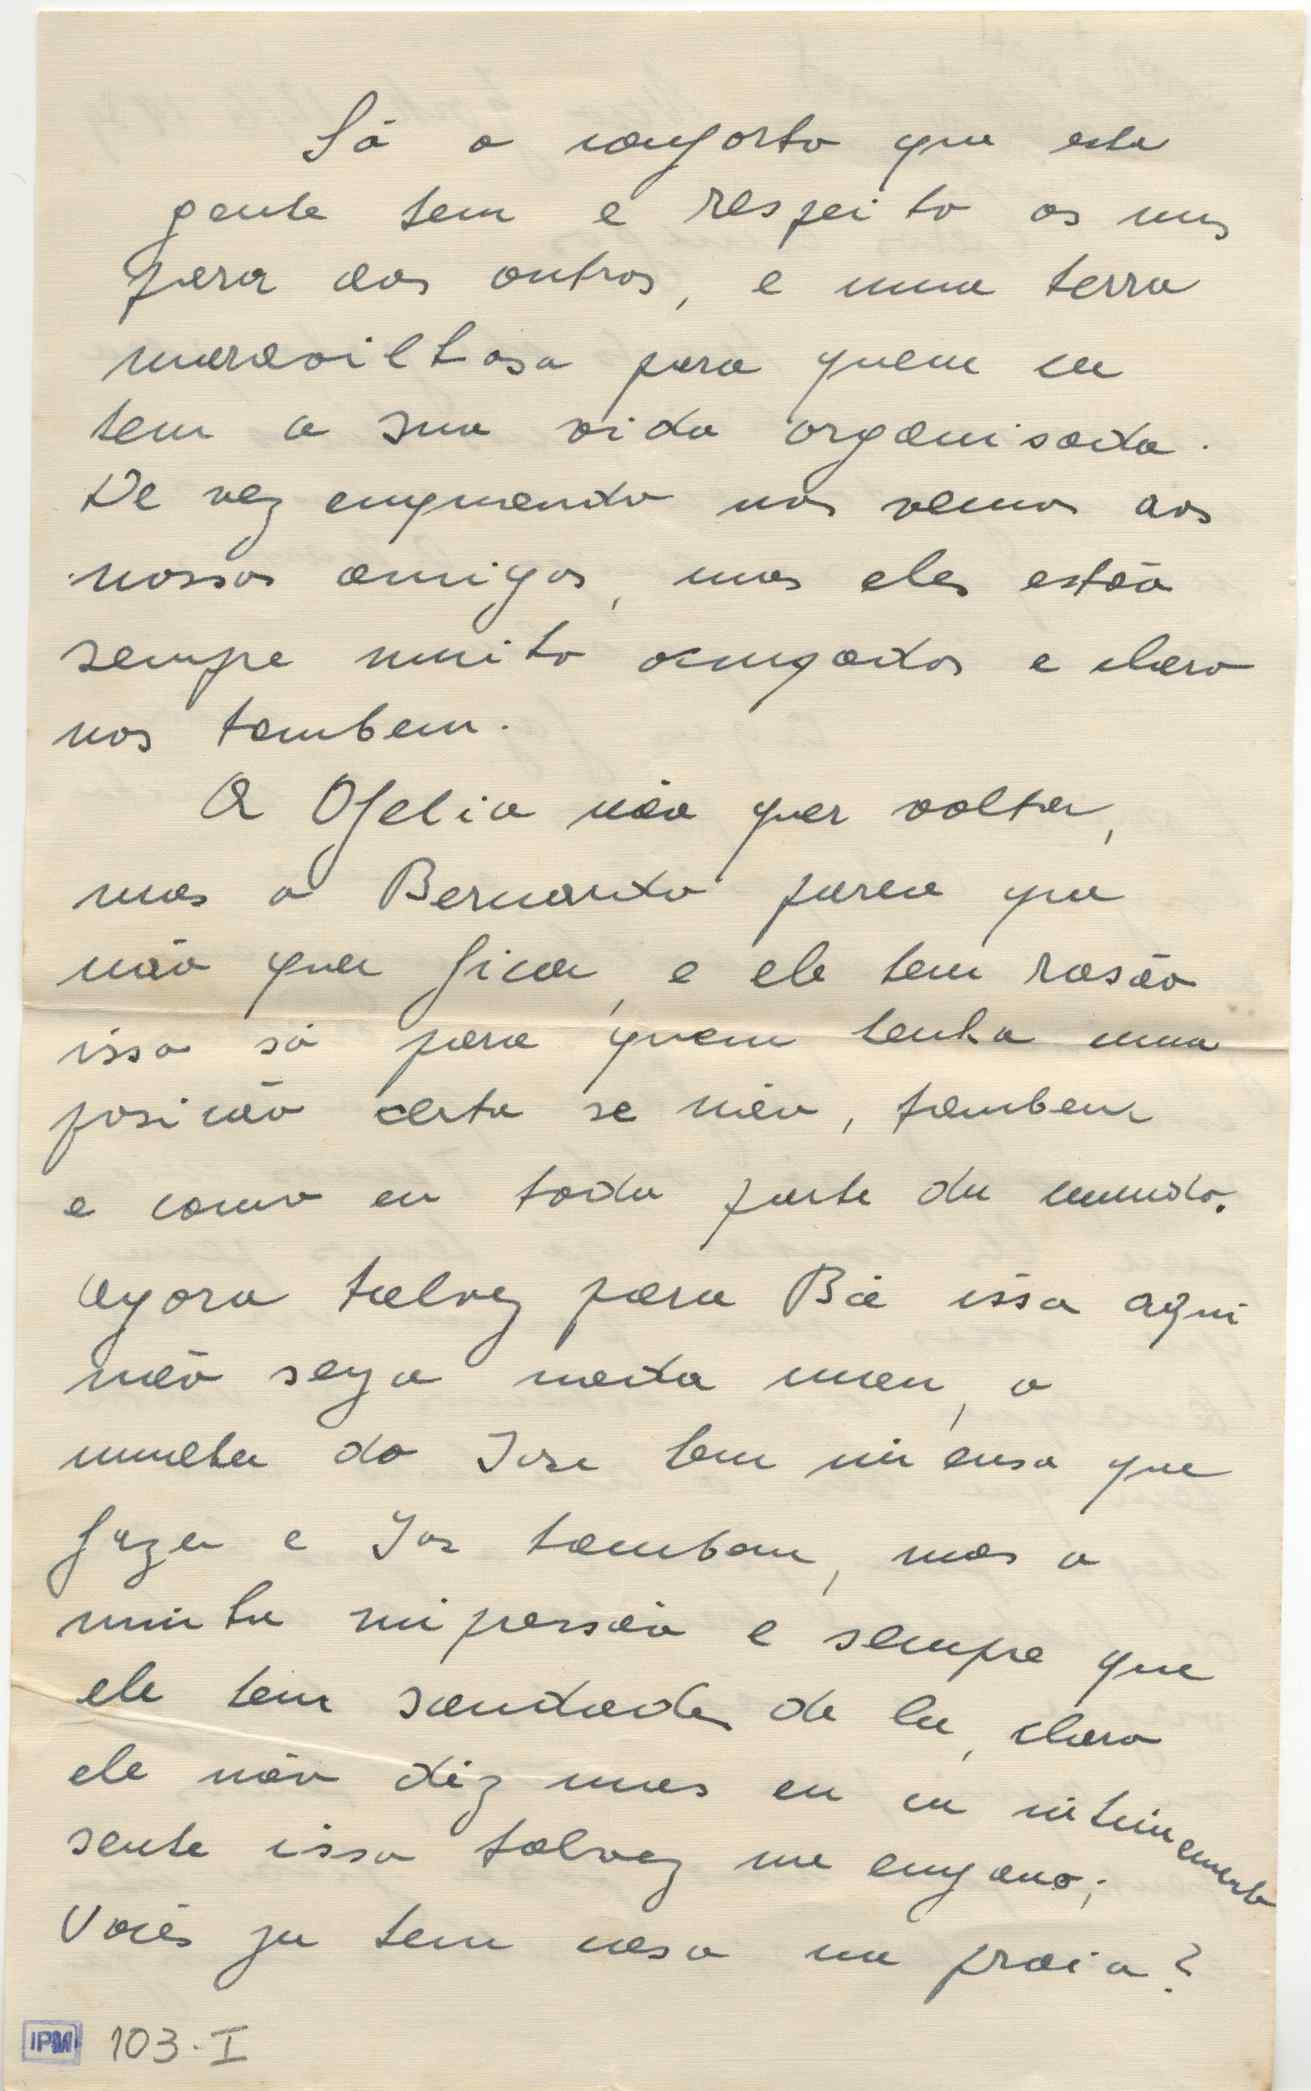 Só o conforto que esta
gente tem e respeito os uns
para aos outros, e uma terra
maravilhosa para quem ca
tem a sua vida organisada.
De vez enquando nos vemos aos
nossos amigos, mas eles estão
sempre muito ocupados e claro
nos tambem.
A Ofelia não quer voltar,
mas o Bernardo parece que
não quer ficar, e ele tem rasão
isso só para quem tenha uma
posicão certa se não, tambem
e como en toda parte du mundo.
Agora talvez para Bia isso aqui
não seya nada mau, a
mulher do Jose tem imensa que
fazer e Jose tambem, mas a
minha impersão e sempre que
ele tem saudades de la, claro
ele não diz mas eu ca intimemente
sente isso talvez me engano;
Voces ja tem casa na praia?
IPM 103-I